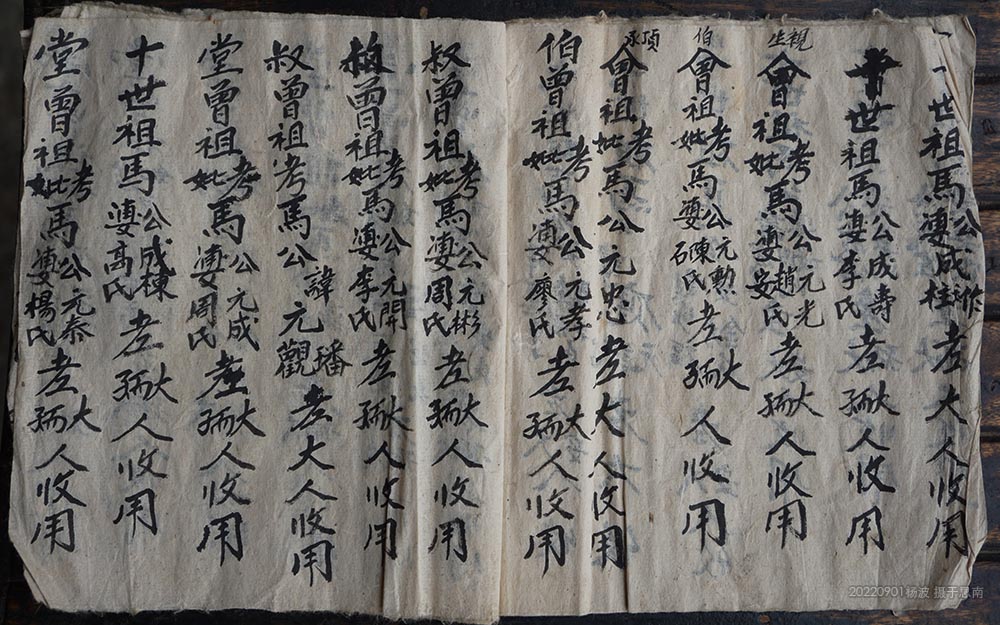 世祖馬公婆成柱老大人收用
世祖馬公成壽婆李氏老大孺人收用
視生曾祖考妣馬公元光婆趙安氏老大孺人收用
伯曾祖考妣馬公元勲婆陳石氏老大孺人收用
頂承曾祖考妣馬公元忠老大人收用
伯曾祖考妣馬公元孝婆廖氏老大孺人收用
叔曾祖考妣馬公元彬婆周氏老大孺人收用
伯曾祖考妣馬公元開婆李氏老大孺人收用
叔曾祖考馬公諱元璠觀老大人收用
堂曾祖考妣馬公元成婆周氏老大孺人收用
十世祖馬公成棟婆高氏老大孺人收用
堂曾祖考妣馬公元泰婆楊氏老大孺人收用
20220901杨波 摄于思南